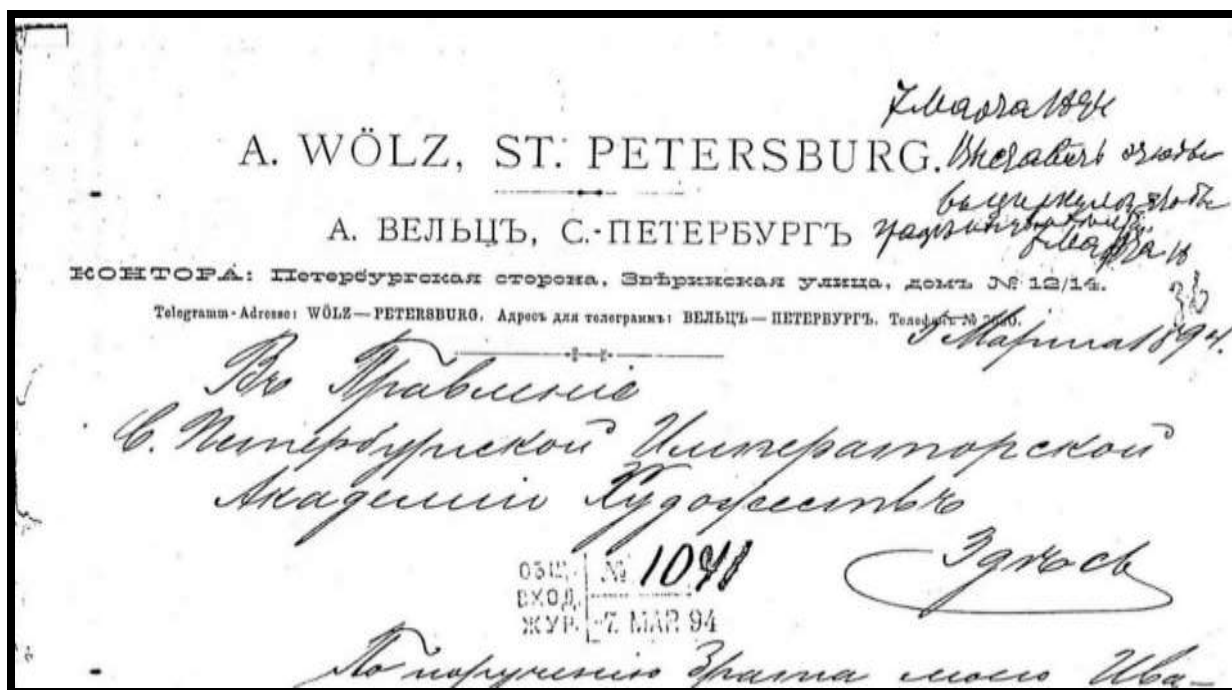 7 Марта 1894
A. WÖLZ, ST. PETERSBURG.
А. ВЕЛЬЦЪ, С.-ПЕТЕРБУРГЪ
КОНТОРА: Петербургская сторона, Звѣринская улица, домъ № 12/14.
Telegramm-Adresse: WÖLZ—PETERSBURG. Адресъ для телеграммъ: ВЕЛЬЦЪ—ПЕТЕРБУРГЪ. Телефонъ №
Марта 1894.
Въ Правленіе
С. Петербургской Императорской
Академіи Художествъ
Здѣсь
ОБЩ. № 1041
ВХОД.
ЖУР. -7. МАР. 94
По порученію брата моего Ива-